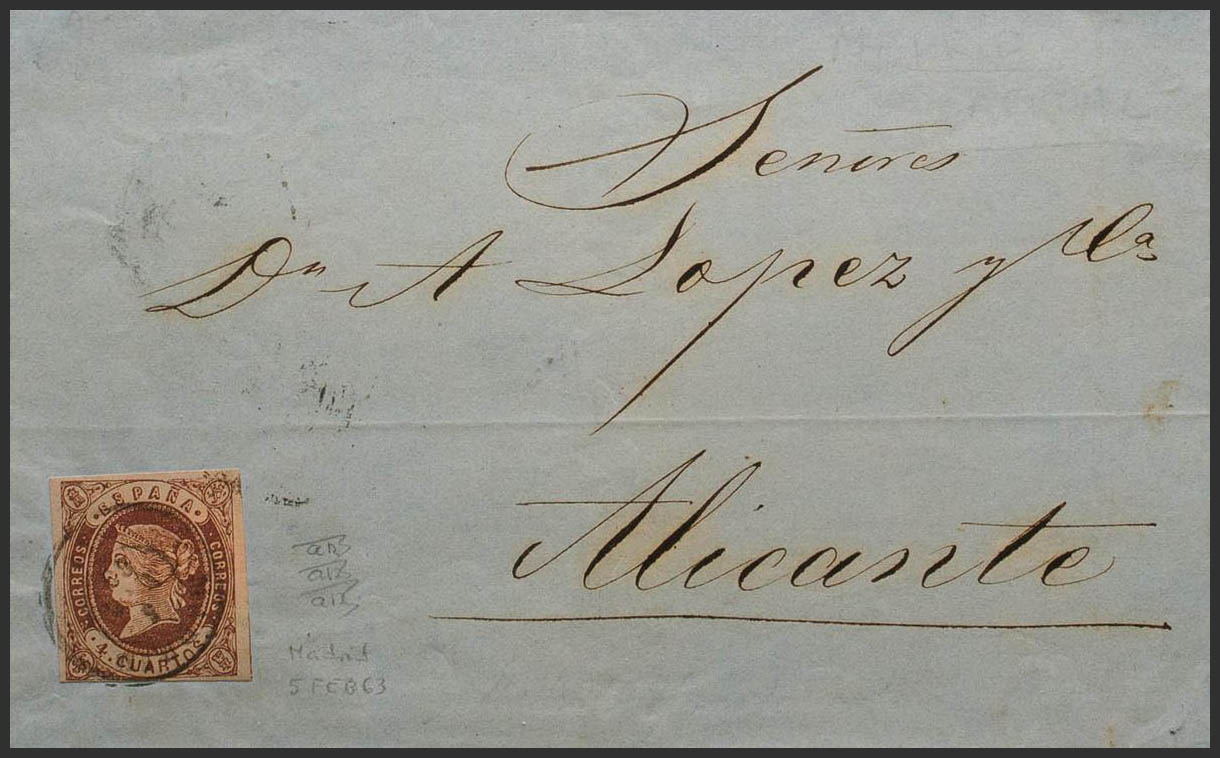 Señores
Dn A Lopez y Ca
Alicante
ESPAÑA
CORREOS
CORREOS
4. CUARTOS
Madrid
5 FEB 63